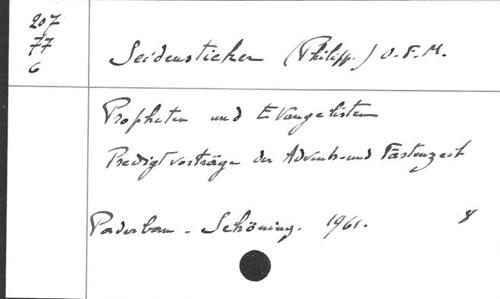 207
77
6
Seidensticker (Philipp.) O.F.M.
Propheten und Evangelisten
Predigtvorträge der Advents-und Fastenzeit
Paderborn - Schöning. 1961. 8